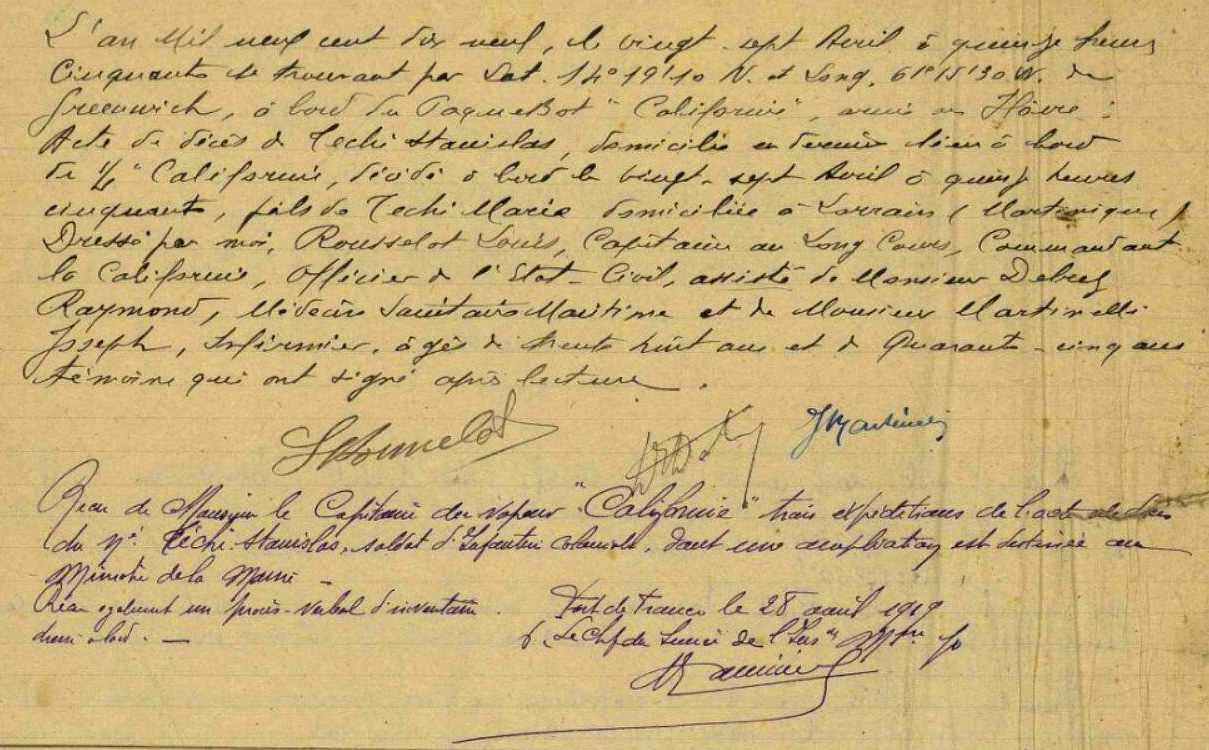 L'an Mil neuf cent dix neuf, le vingt-sept Avril à quinze heures
Cinquante se trouvant par Lat. 14°19'10 N. et Long. 61°15'30 W. de
Greenwich, à bord du Paquebot "Californie", armé au Hâvre :
Acte de décès de Techi Stanislas, domicilié en dernier lieu à bord
"Californie, décédé à bord le vingt-sept Avril à quinze heures
cinquante, fils de Techi Marie domiciliée à Lorrain (Martinique)
Dressé par moi, Rousselot Louis, Capitaine au Long Cours, Commandant
la Californie, Officier de l'Etat-Civil, assisté de Monsieur
Raymond, Médecin Sanitaire Maritime et de Monsieur Martinelli
Joseph, Infirmier, âgés de trente huit ans et de Quarante-cinq ans
témoins qui ont signé après lecture.
LRousselot JMartinelli
Reçu de Monsieur le Capitaine du vapeur "Californie" trois expéditions de l'acte de décès
du Né Téchi Stanislas, soldat d'Infanterie coloniale, dont une ampliation est destinée au
Ministre de la Marine
Reçu également un procès-verbal d'inventaire
Fort de France le 28 avril 1919
Le Chef du Service de l'Ins on